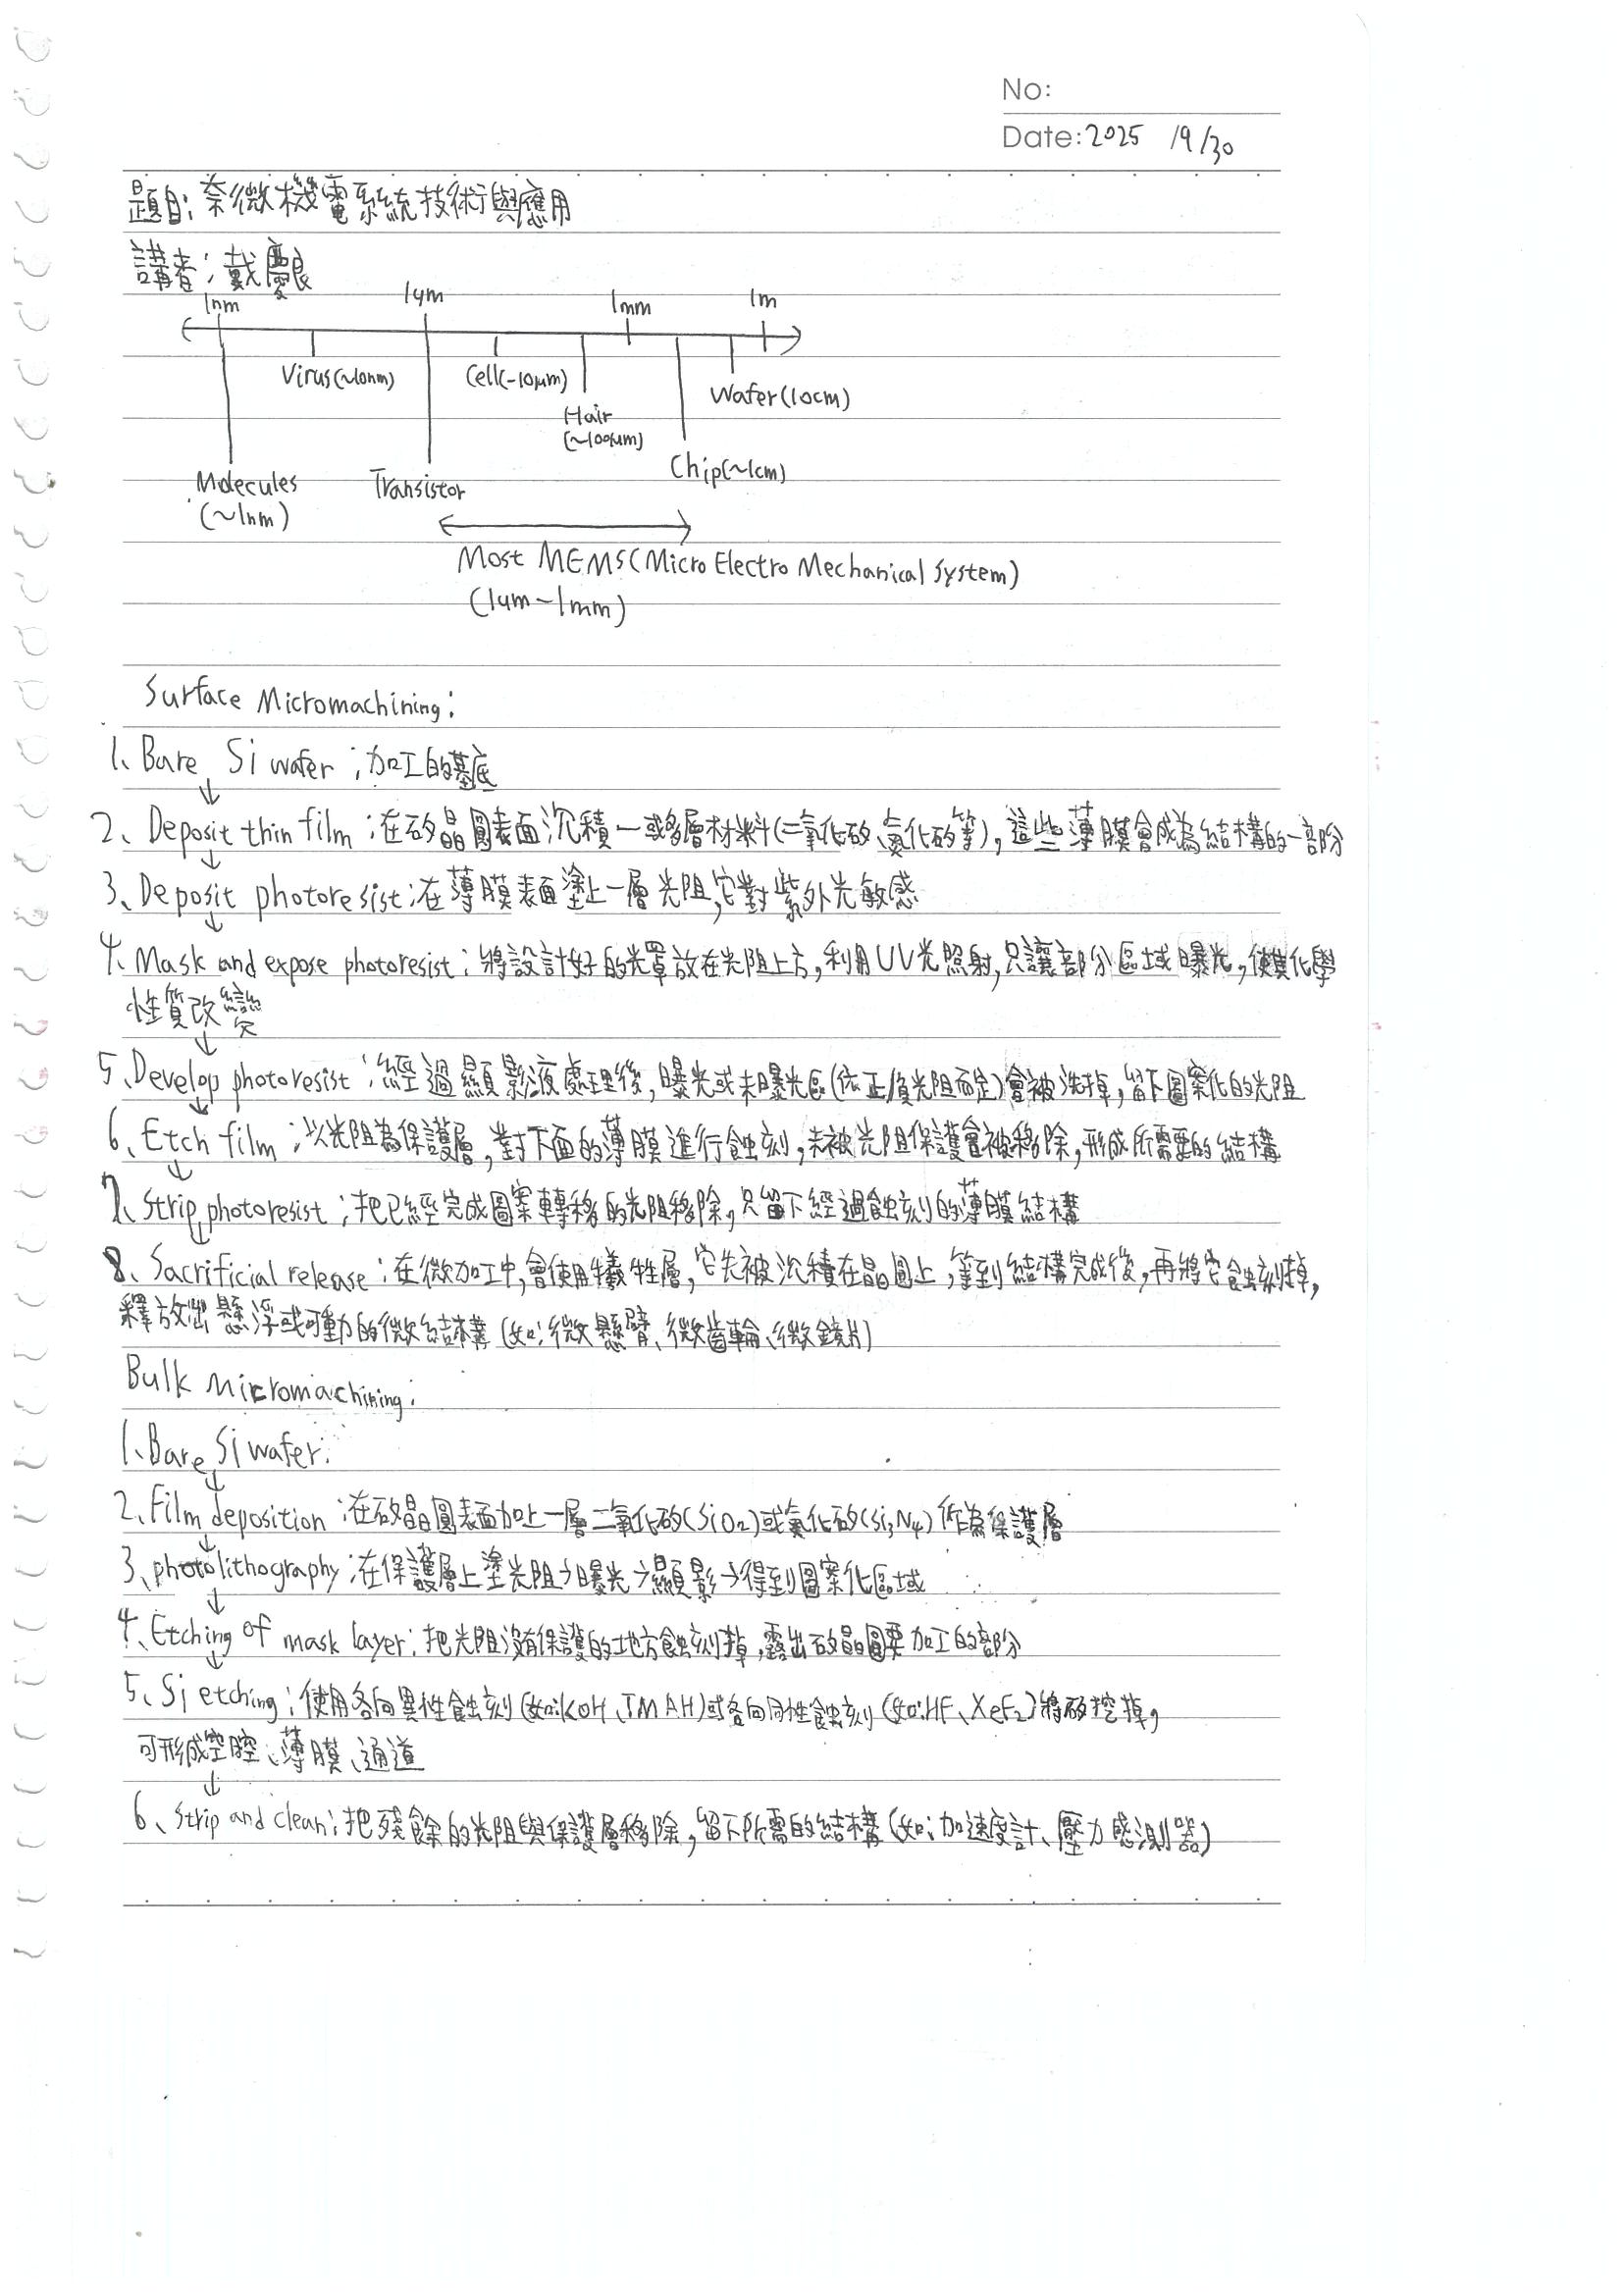 No:
Date: 2025 / 9 / 30
題目: 奈微機電系統技術與應用
講者: 戴慶良
1nm 1μm 1mm 1m
Virus(~10nm) Cell(~10μm) Wafer(10cm)
Hair
(~100μm)
Molecules Transistor Chip(~1cm)
(~1nm)
Most MEMS(Micro Electro Mechanical System)
(1μm-1mm)
Surface Micromachining:
1、Bare Si wafer:加工的基底
↓
2、Deposit thin film:在矽晶圓表面沉積一或多層材料(二氧化矽、氮化矽等),這些薄膜會成為結構的一部份
↓
3、Deposit photoresist:在薄膜表面塗上一層光阻,它對紫外光敏感
↓
4、Mask and expose photoresist:將設計好的光罩放在光阻上方,利用UV光照射,只讓部分區域曝光,使其化學
性質改變
↓
5、Develop photoresist:經過顯影液處理後,曝光或未曝光區(依正/負光阻而定)會被洗掉,留下圖案化的光阻
↓
6、Etch film:以光阻為保護層,對下面的薄膜進行蝕刻,未被光阻保護會被移除,形成所需要的結構
↓
7、Strip photoresist:把已經完成圖案轉移的光阻移除,只留下經過蝕刻的薄膜結構
↓
8、Sacrificial release:在微加工中,會使用犧牲層,它先被沉積在晶圓上,等到結構完成後,再將它蝕刻掉,
釋放出懸浮或可動的微結構(如:微懸臂、微齒輪、微鏡片)
Bulk Micromachining:
1、Bare Si wafer:
↓
2、Film deposition:在矽晶圓表面加上一層二氧化矽(SiO2)或氮化矽(Si3N4)作為保護層
↓
3、photolithography:在保護層上塗光阻→曝光→顯影→得到圖案化區域
↓
4、Etching of mask layer:把光阻沒有保護的地方蝕刻掉,露出矽晶圓要加工的部分
↓
5、Si etching:使用各向異性蝕刻(如:KOH、TMAH)或各向同性蝕刻(如:HF、XeF2)將矽挖掉,
可形成空腔、薄膜、通道
↓
6、Strip and clean:把殘餘的光阻與保護層移除,留下所需的結構(如:加速度計、壓力感測器)